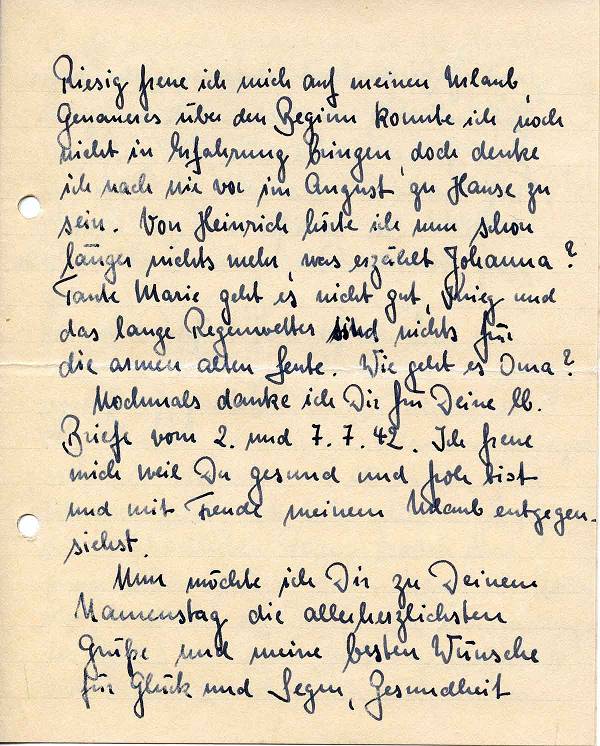 Riesig freue ich mich auf meinen Urlaub,
Genaueres über den Beginn konnte ich noch
nicht in Erfahrung bringen, doch denke
ich nach wie vor im August zu Hause zu
sein. Von Heinrich hörte ich nun schon
länger nichts mehr, was erzählt Johanna?
Tante Marie geht es nicht gut, Krieg und
das lange Regenwetter sind nichts für
die armen alten Leute. Wie geht es Oma?
Nochmals danke ich Dir für Deine lb.
Briefe vom 2. und 7.7.42. Ich freue
mich weil Du gesund und froh bist
und mit Freude meinem Urlaub entgegen-
siehst.
Nun möchte ich Dir zu Deinem
Namenstag die allerherzlichsten
Grüße und meine besten Wünsche
für Glück und Segen, Gesundheit